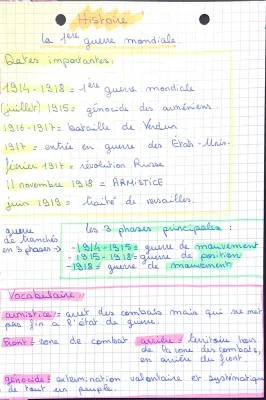 Histoire
la 1ère guerre mondiale
Dates importantes:
1914-1918 = 1ère guerre mondiale
(juillet) 1915 = génocide des arméniens.
1916-1917 = bataille de Verdun
1917 = entrée en guerre des États-Unis.
février 1917 = révolution Russe
11 novembre 1918 = ARMISTICE
juin 1919 = traité de versailles.
guerre de tranchés en 3 phases →
les 3 phases principales :
- 1914-1915 = guerre de mouvement
- 1915-1918 = guerre de position
- 1918 = guerre de mouvement
Vocabulaire:
armistice = arret des combats mais qui ne met
pas fin a l'état de guerre.
front = zone de combat
arrière = territoire hors
de la zone des combats,
en arrière du front.
génocide = extermination volontaire et systématique
de tout un peuple.